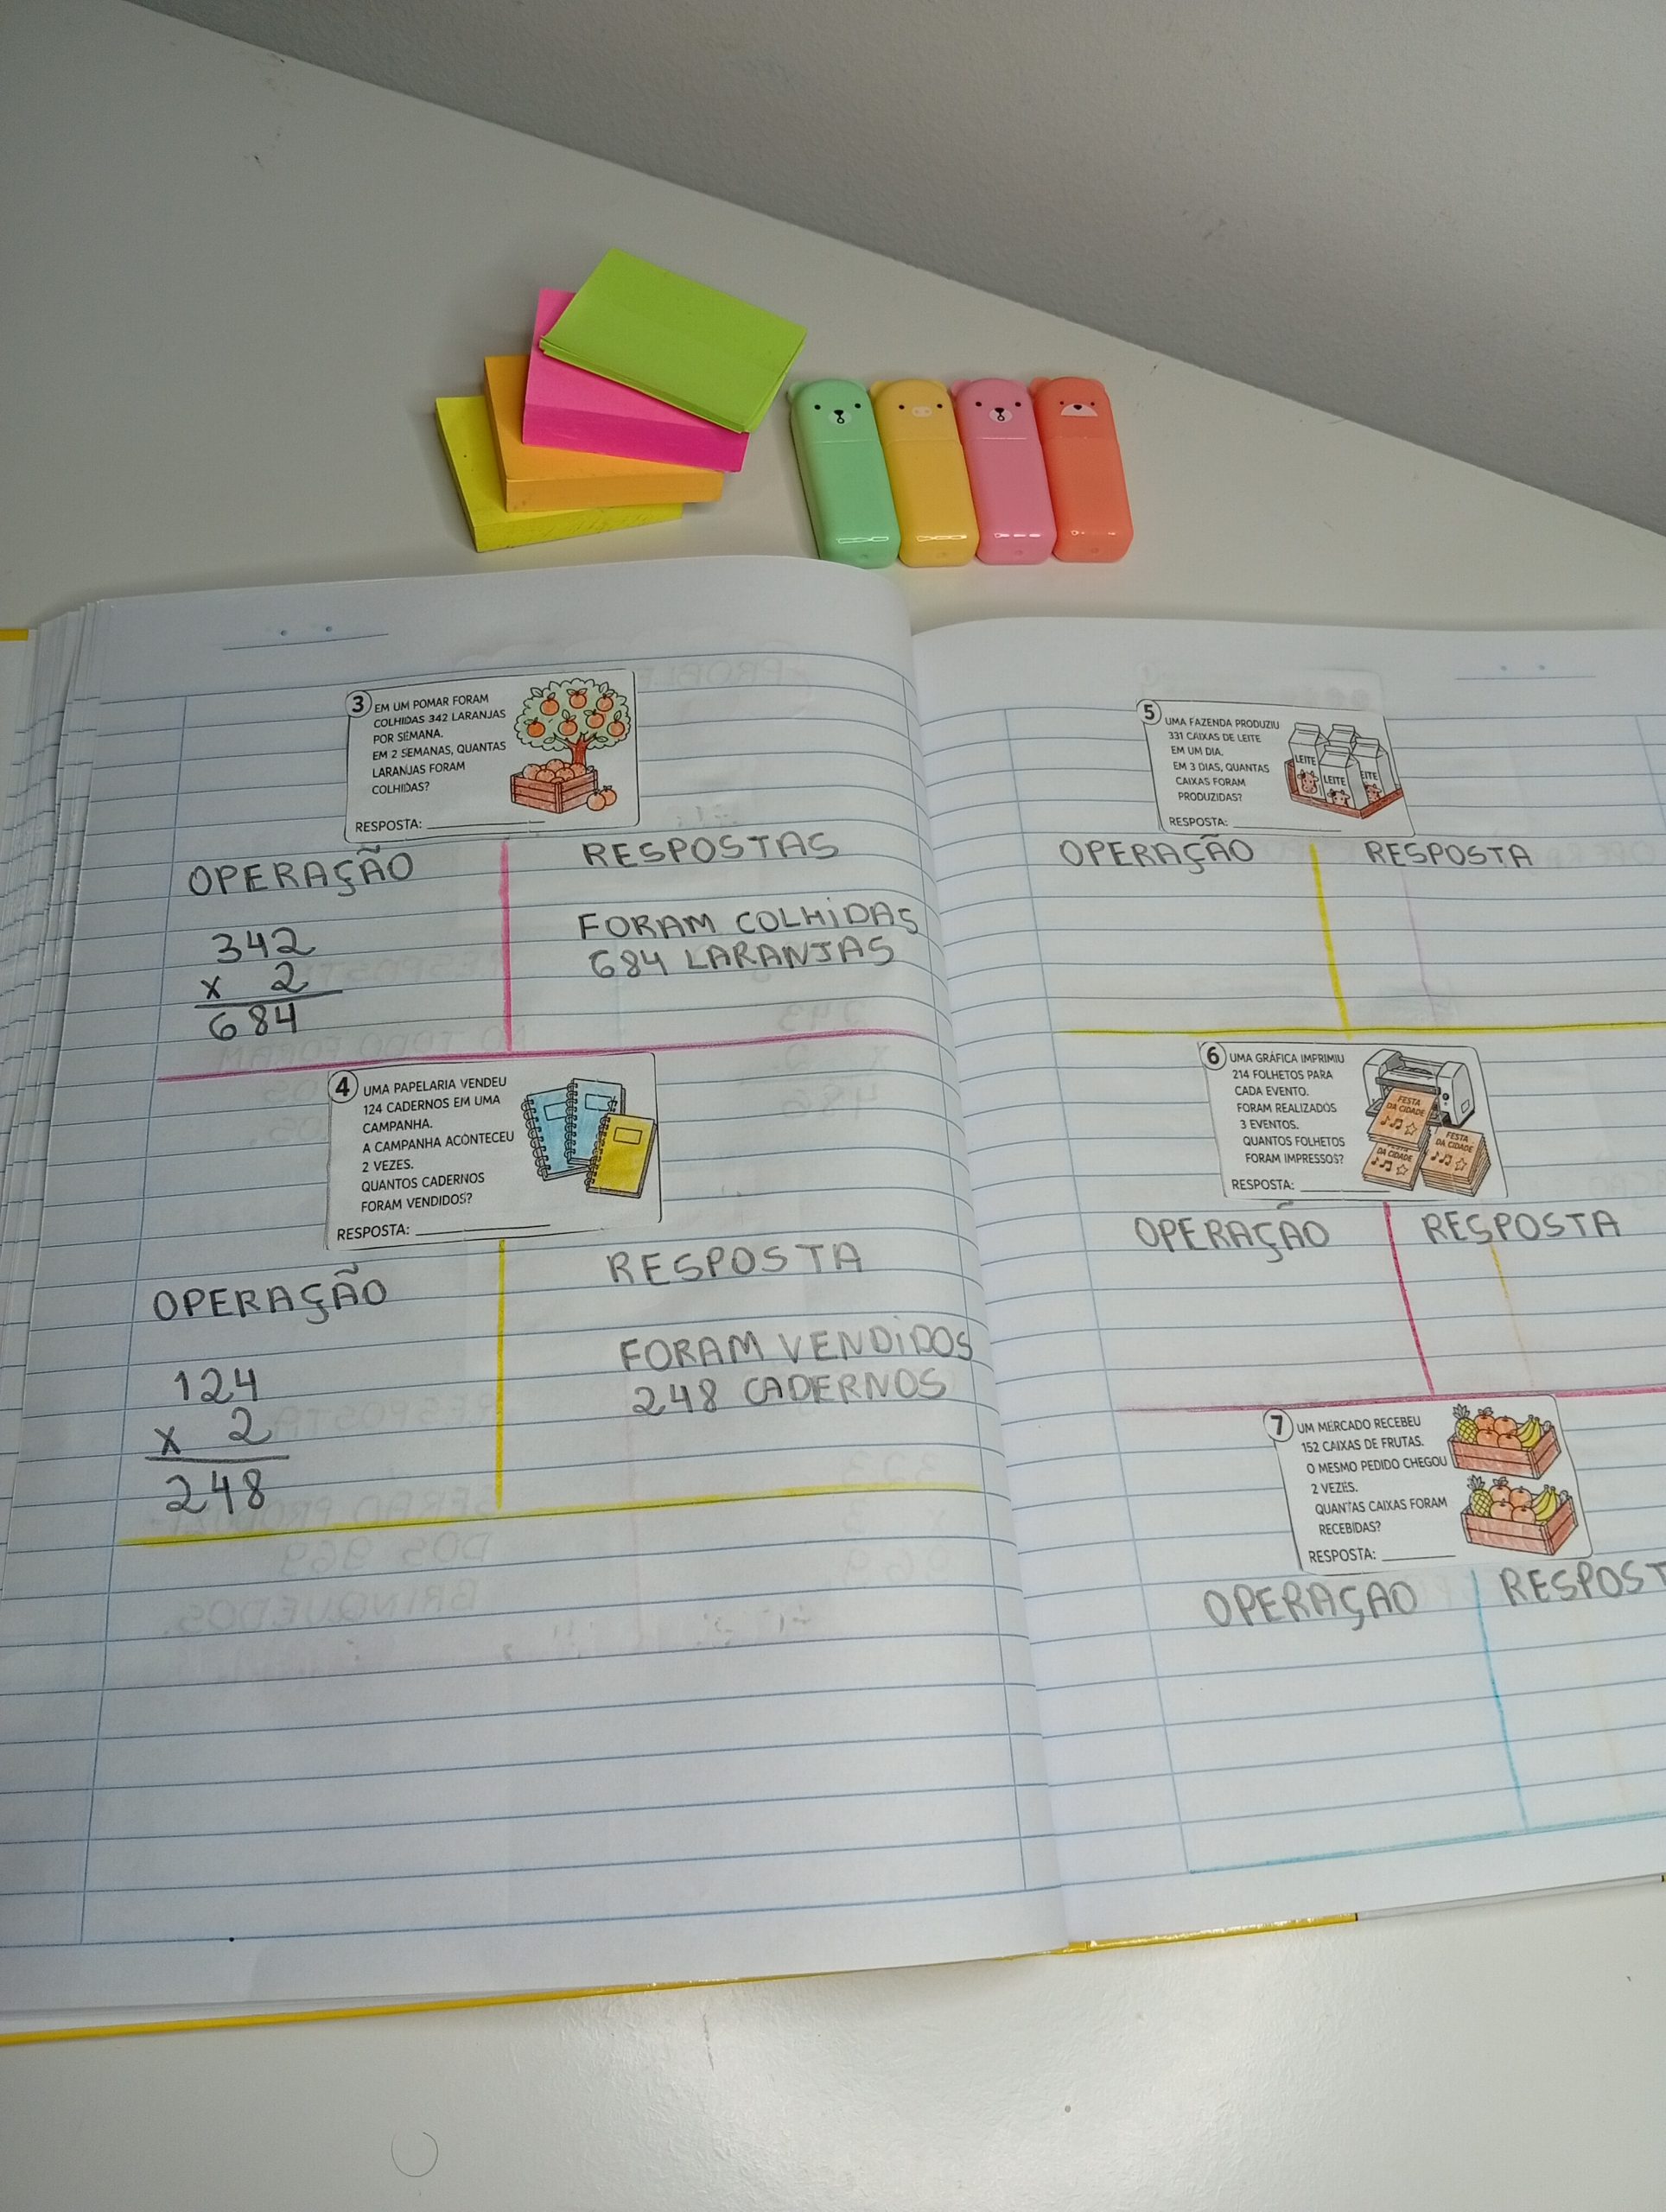 3 EM UM POMAR FORAM
COLHIDAS 342 LARANJAS
POR SEMANA.
EM 2 SEMANAS, QUANTAS
LARANJAS FORAM
COLHIDAS?
RESPOSTA:
OPERAÇÃO
RESPOSTAS
342
x 2
684
FORAM COLHIDAS
684 LARANJAS
4 UMA PAPELARIA VENDEU
124 CADERNOS EM UMA
CAMPANHA.
A CAMPANHA ACONTECEU
2 VEZES.
QUANTOS CADERNOS
FORAM VENDIDOS?
RESPOSTA:
OPERAÇÃO
RESPOSTA
124
x 2
248
FORAM VENDIDOS
248 CADERNOS
5 UMA FAZENDA PRODUZIU
331 CAIXAS DE LEITE
EM UM DIA.
EM 3 DIAS, QUANTAS
CAIXAS FORAM
PRODUZIDAS?
RESPOSTA:
LEITE
LEITE
EITE
OPERAÇÃO
RESPOSTA
6 UMA GRÁFICA IMPRIMIU
214 FOLHETOS PARA
CADA EVENTO.
FORAM REALIZADOS
3 EVENTOS.
QUANTOS FOLHETOS
FORAM IMPRESSOS?
RESPOSTA:
FESTA
DA CIDADE
FESTA
DA CIDADE
DA CIDADE
OPERAÇÃO
RESPOSTA
7 UM MERCADO RECEBEU
152 CAIXAS DE FRUTAS.
O MESMO PEDIDO CHEGOU
2 VEZES.
QUANTAS CAIXAS FORAM
RECEBIDAS?
RESPOSTA:
OPERAÇAO
RESPOST